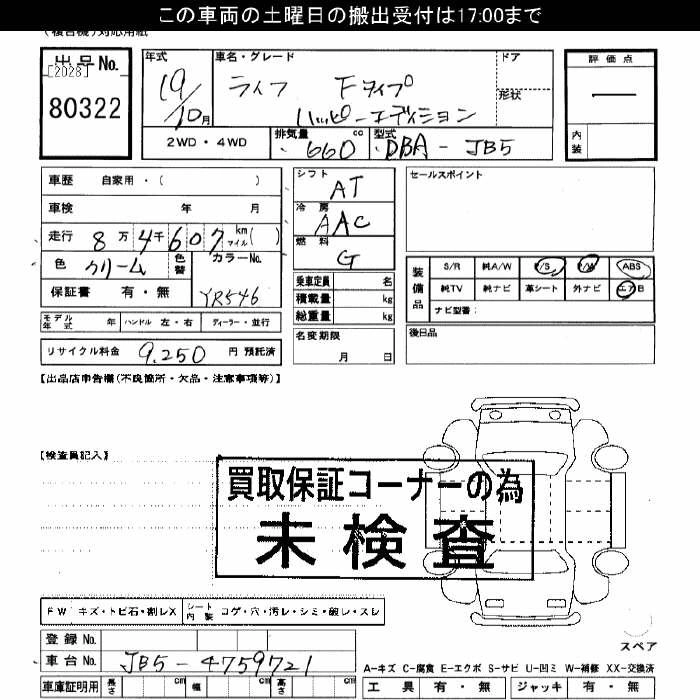 この車両の土曜日の搬出受付は17:00まで
(複合機)対応用紙
出品No.
[2028]
80322
年式
19/10月
車名・グレード
ライフ Fタイプ
ハッピーエディション
ドア
形状
評価点
―
内装
2WD・4WD
排気量
660 cc
型式
DBA-JB5
車歴 自家用・( )
車検 年 月
走行 8万4千607 km マイル( )
色 クリーム 色替
カラーNo.
YR546
保証書 有・無
モデル年式 年 ハンドル 左・右 ディーラー・並行
リサイクル料金 9,250 円 預託済
シフト
AT
冷房
AAC
燃料
G
乗車定員 名
積載量 kg
総重量 kg
名変期限
月 日
セールスポイント
装備品
S/R 純A/W P/S P/W ABS
純TV 純ナビ 革シート 外ナビ エアB
ナビ型番:
後日品
【出品店申告欄(不良箇所・欠品・注意事項等)】
【検査員記入】
買取保証コーナーの為
未検査
FW キズ・トビ石・割レX シート内装 コゲ・穴・汚レ・シミ・破レ・スレ
登録No.
車台No. JB5-4759721
車庫証明用 長さ cm 幅 cm 高さ cm
スペア
A-キズ C-腐食 E-エクボ S-サビ U-凹ミ W-補修 XX-交換済
工具 有・無 ジャッキ 有・無